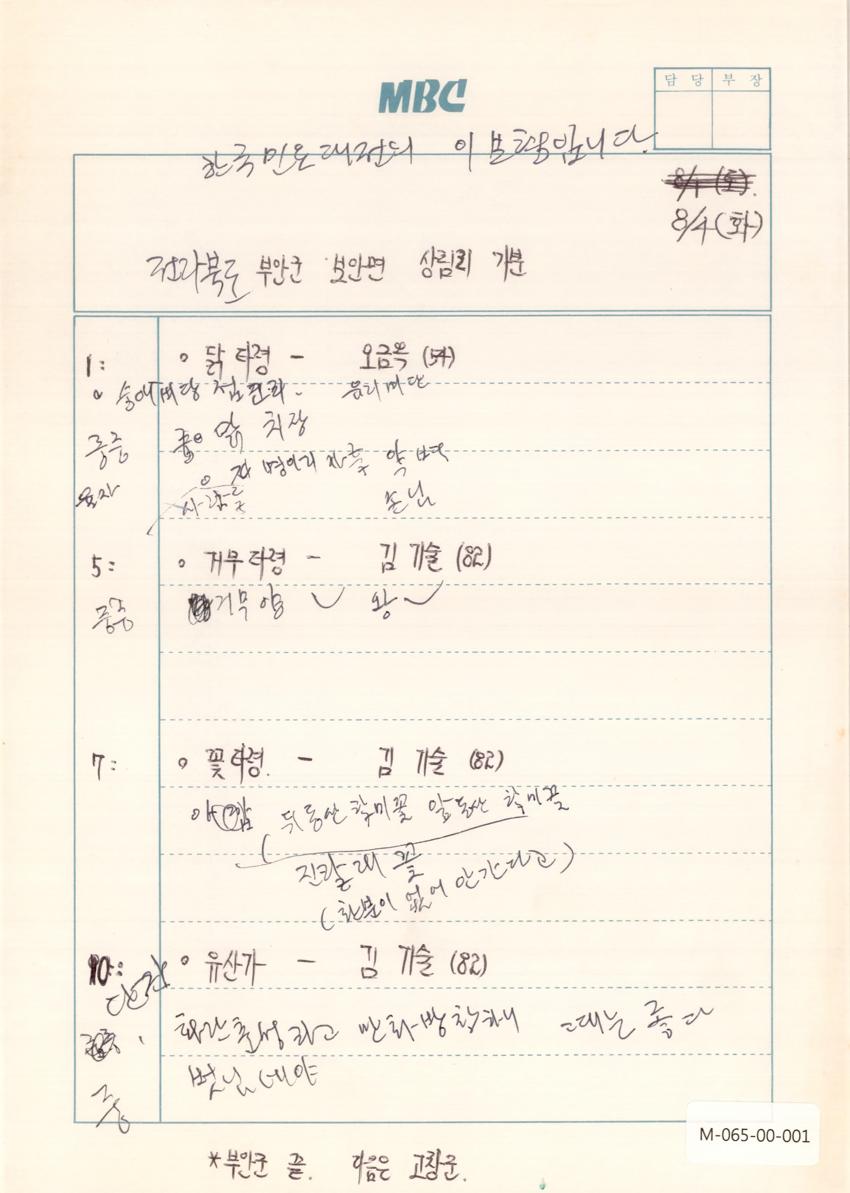 MBC
담당 부장
한국민요대전의 이보형입니다.
8/1 (토).
8/4 (화)
전라북도 부안군 보안면 상림리 가분
1: 닭타령 - 오금옥 (54)
유리바탕
중중 치장
손님
5: 거무타령 - 김기술 (82)
중중 거무야 왕
7: 꽃타령. - 김기술 (82)
뒤동산 할미꽃 앞동산 할미꽃
진달래 꽃
(화분이 없어 안간다고)
10: 유산가 - 김기술 (82)
화란춘성하고 만화방창하니 때는 좋다
중 벗님네야
*부안군 끝. 다음은 고창군.
M-065-00-001